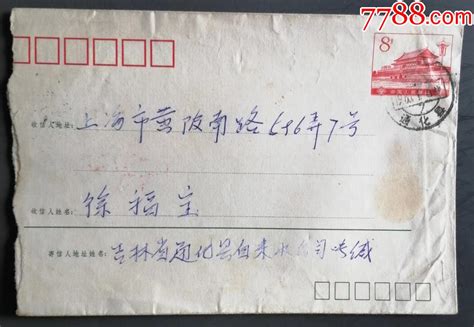 7788.com
8分
收信人地址:上海市黄陂南路646弄7号
收信人姓名:徐福宝
寄信人地址姓名:吉林省通化县自来水公司
通化